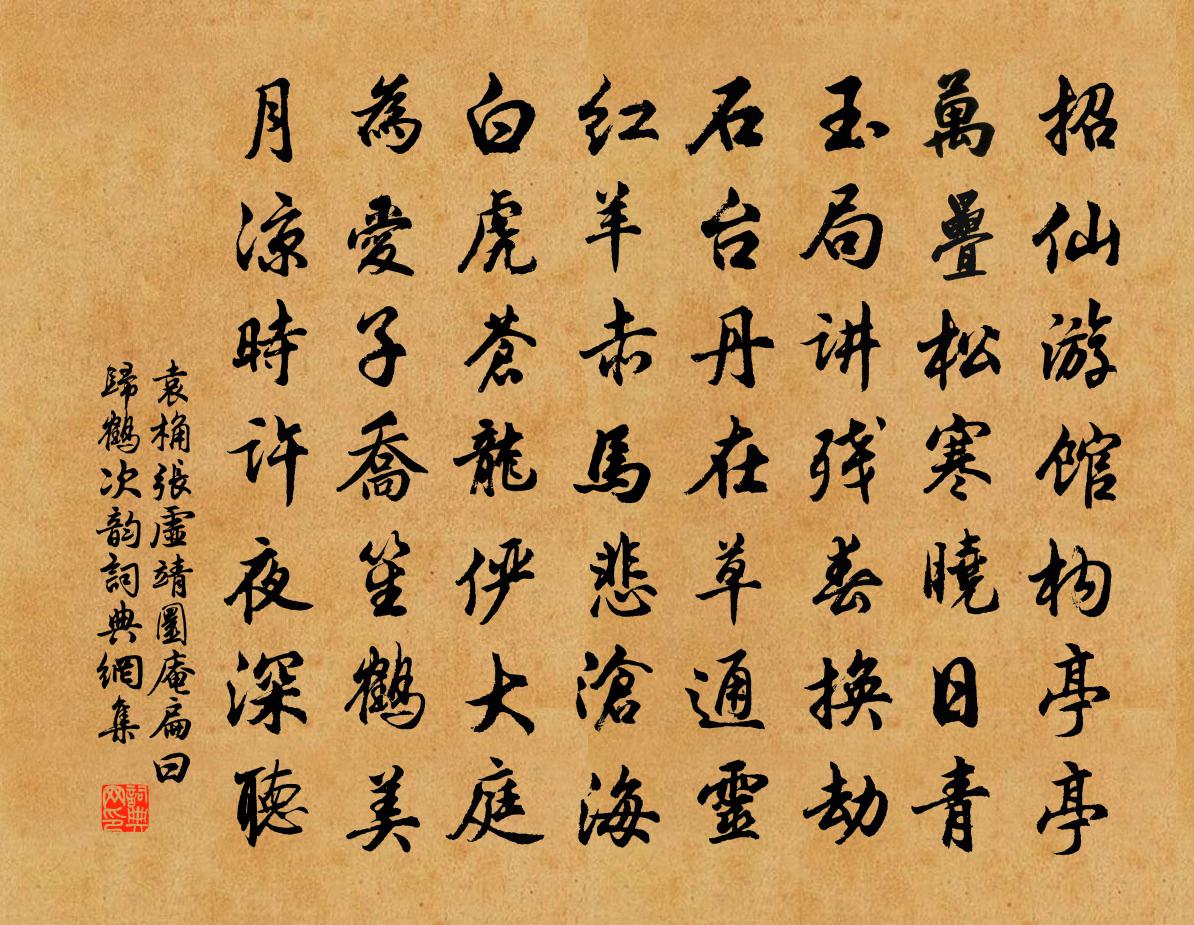 招仙游馆构亭亭
萬疊松寒曉日青
玉局讲残春换劫
石台丹在草通靈
红羊赤馬悲滄海
白虎蒼龍俨大庭
為愛子喬笙鶴美
月涼時许夜深聽
袁桷張虛靖圜庵扁曰
歸鶴次韵詞典網集
詞典网印